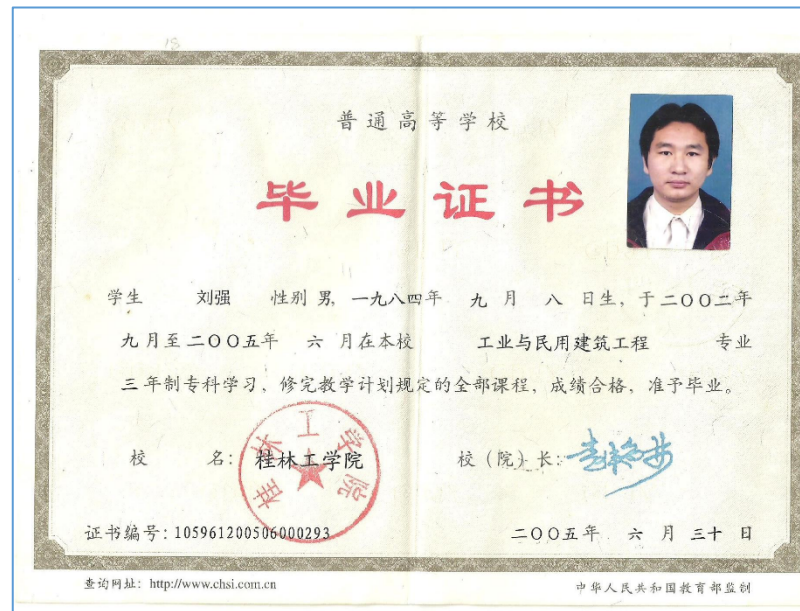 18
普通高等学校
毕业证书
学生 刘强 性别 男, 一九八四年 九 月 八 日生, 于二〇〇二年
九月至二〇〇五年 六 月在本校 工业与民用建筑工程 专业
三年制专科学习, 修完教学计划规定的全部课程, 成绩合格, 准予毕业。
校 名: 桂林工学院 校(院)长:
桂林工学院
证书编号: 105961200506000293 二〇〇五年 六 月 三十 日
查询网址: http://www.chsi.com.cn 中华人民共和国教育部监制